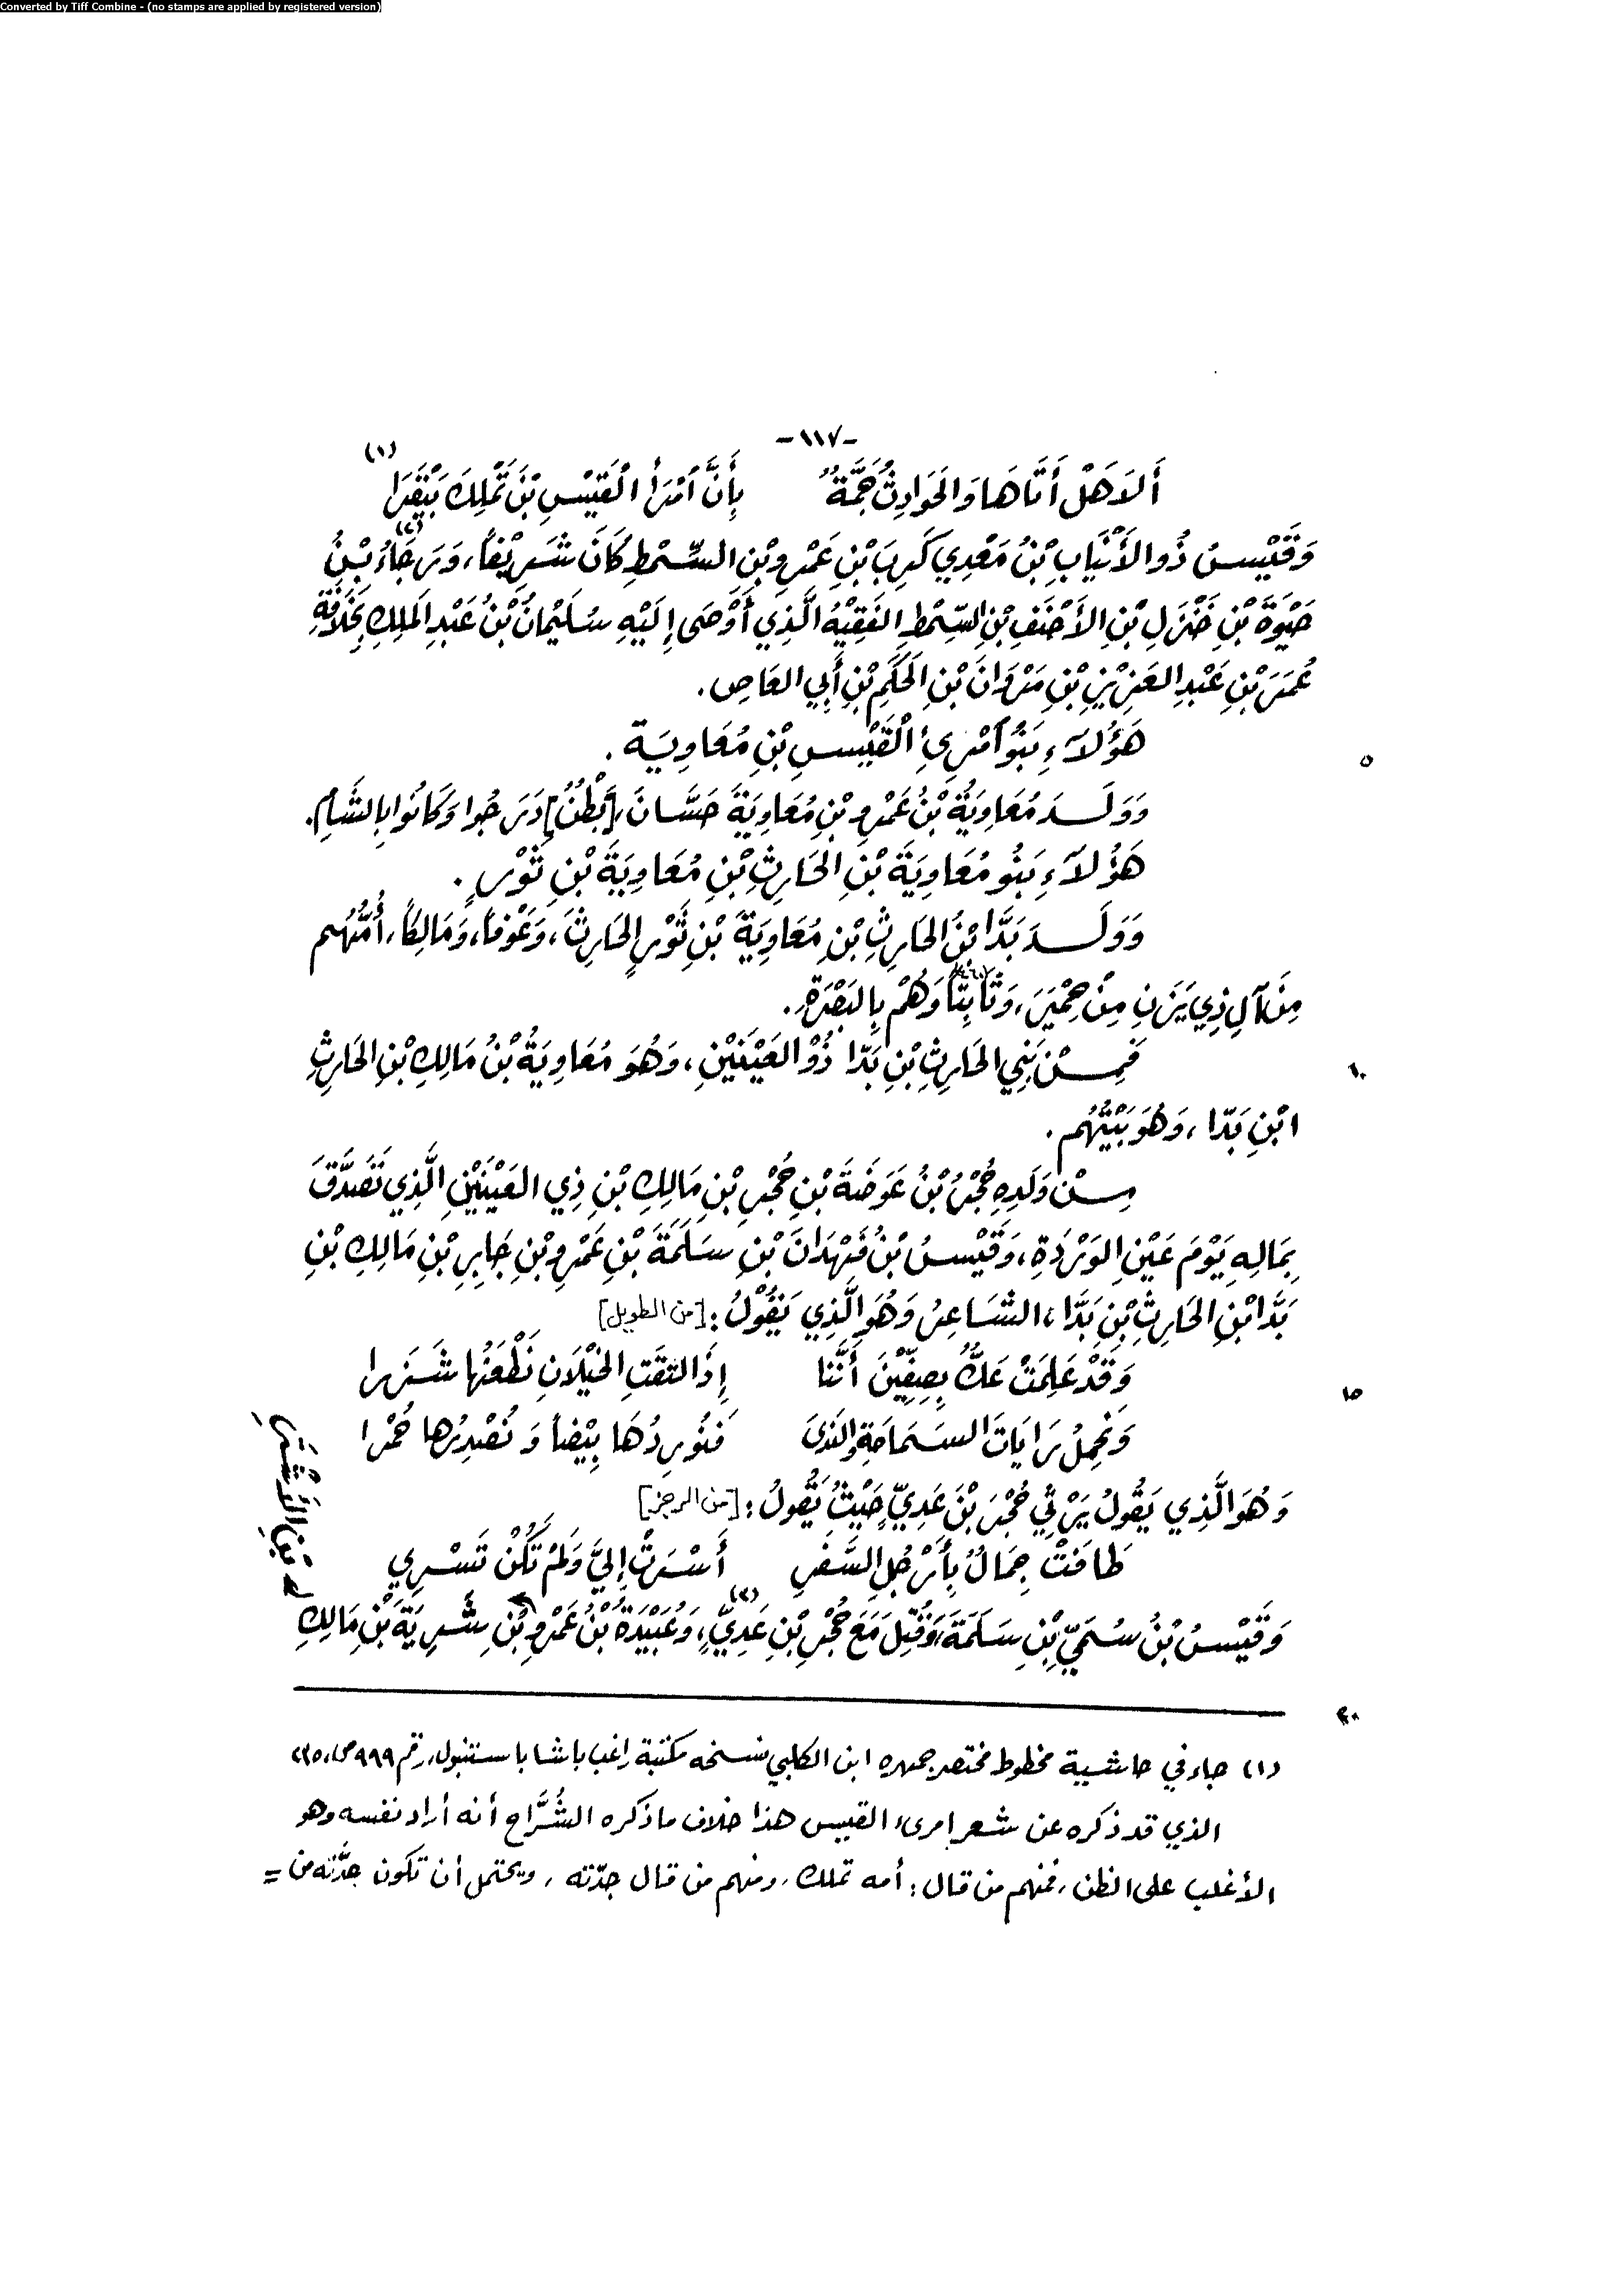 Converted by Tiff Combine - (no stamps are applied by registered version)
-١١٧-
أَلَا هَلْ أَتَاهَا وَالحَوَادِثُ جَمَّةٌ بِأَنَّ ٱمْرَأَ ٱلْقَيْسِ بْنَ تَمْلِكَ بَيْقَرَا (١)
وَقَيْسُ ذُو الأَنْيَابِ بْنُ مَعْدِي كَرِبَ بْنِ عَمْرِو بْنِ السِّمْطِ كَانَ شَرِيْفاً، وَرَجَاءُ (٢) بْنُ
حَيْوَةَ بْنِ خَنْزَلِ بْنِ الأَحْنَفِ بْنِ السِّمْطِ الفَقِيْهُ الَّذِي أَوْصَى إِلَيْهِ سُلَيْمَانُ بْنُ عَبْدِ المَلِكِ بِخِلَافَةِ
عُمَرَ بْنِ عَبْدِ العَزِيْزِ بْنِ مَرْوَانَ بْنِ الحَكَمِ بْنِ أَبِي العَاصِ.
هَؤُلَاءِ بَنُو ٱمْرِئِ ٱلْقَيْسِ بْنِ مُعَاوِيَة. ٥
وَوَلَـدَ مُعَاوِيَةُ بْنُ عَمْرِو بْنِ مُعَاوِيَةَ حَسَّانَ، [بَطْنٌ] دَرَجُوا وَكَانُوا بِالشَّأْمِ.
هَؤُلَاءِ بَنُو مُعَاوِيَةَ بْنِ الحَارِثِ بْنِ مُعَاوِيَةَ بْنِ ثَوْرٍ.
وَوَلَـدَ بَدَّا بْنُ الحَارِثِ بْنِ مُعَاوِيَةَ بْنِ ثَوْرٍ الحَارِثَ، وَعَوْفاً، وَمَالِكاً، أُمُّهُم
مِنْ آلِ ذِي يَزَنٍ مِنْ حِمْيَرَ، وَثَابِتاً وَهُمْ بِالبَصْرَةِ.
فَمِـنْ بَنِي الحَارِثِ بْنِ بَدّا ذُوْ العَيْنَيْنِ، وَهُوَ مُعَاوِيَةُ بْنُ مَالِكِ بْنِ الحَارِثِ ١٠
ابْنِ بَدّا، وَهُوَ بَيْتُهُم.
مِـنْ وَلَدِهِ حُجْرُ بْنُ عَوَضَةَ بْنِ حُجْرِ بْنِ مَالِكِ بْنِ ذِي العَيْنَيْنِ الَّذِي تَصَدَّقَ
بِمَالِهِ يَوْمَ عَيْنِ الوَرْدَةِ، وَقَيْسُ بْنُ فَهْدَانَ بْنِ سَلَمَةَ بْنِ عَمْرِو بْنِ جَابِرِ بْنِ مَالِكِ بْنِ
بَدَّا بْنِ الحَارِثِ بْنِ بَدَّا، الشَّاعِرُ وَهُوَ الَّذِي يَقُوْلُ: [من الطويل]
وَقَدْ عَلِمَتْ عَكٌّ بِصِفِّيْنَ أَنَّنَا إِذَا التَقَتِ الخَيْلَانِ نَطْعَنُها شَزَرا ١٥
وَنَحْمِلُ رَايَاتَ السَّمَاحَةِ وَالنَدَى فَنُورِدُهَا بِيْضاً وَنُصْدِرُها حُمْرا
وَهُوَ الَّذِي يَقُولُ يَرْثِي حُجْرَ بْنَ عَدِيٍّ حَيْثُ يَقُولُ: [من الرجز]
طَافَتْ جِمَالٌ بِأَرْجُلِ السَّفْرِ أَسْرَتْ إِليَّ وَلَمْ تَكُنْ تَسْرِي
وَقَيْسُ بْنُ سُمَيِّ بْنِ سَلَمَةَ، وَقُتِلَ مَعَ حُجْرِ بْنِ عَدِيٍّ (٣)، وَعُبَيْدَةُ بْنُ عَمْرِو بْنِ شَرِيَةَ بْنِ مَالِكِ
٢٠
(١) جاء في حاشية مخطوط مختصر جمهرة ابن الكلبي نسخه مكتبة راغب باشا باستنبول، رقم ٩٩٩ ص
الذي قد ذكره عن شعر امرىء القيس هذا خلاف ما ذكره الشُّرَّاح أنه أراد نفسه وهو
الأغلب على الظن، فمنهم من قال: أمه تملك، ومنهم من قال جدّته، ويحتمل أن تكون جدَّته من =